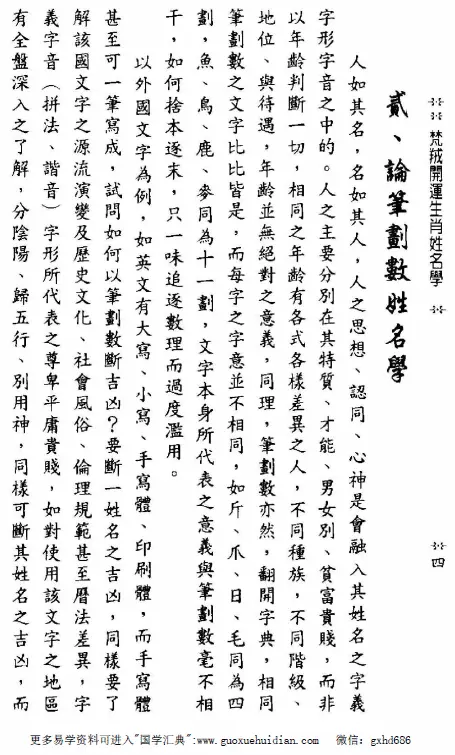 ⁘⁘ 梵羢開運生肖姓名學 ⁘⁘ 四
貳、論筆劃數姓名學
人如其名，名如其人，人之思想、認同、心神是會融入其姓名之字義
字形字音之中的。人之主要分別在其特質、才能、男女別、貧富貴賤，而非
以年齡判斷一切，相同之年齡有各式各樣差異之人，不同種族，不同階級、
地位、與待遇，年齡並無絕對之意義，同理，筆劃數亦然，翻開字典，相同
筆劃數之文字比比皆是，而每字之字意並不相同，如斤、爪、日、毛同為四
劃，魚、鳥、鹿、麥同為十一劃，文字本身所代表之意義與筆劃數毫不相
干，如何捨本逐末，只一味追逐數理而過度濫用。
以外國文字為例，如英文有大寫、小寫、手寫體、印刷體，而手寫體
甚至可一筆寫成，試問如何以筆劃數斷吉凶？要斷一姓名之吉凶，同樣要了
解該國文字之源流演變及歷史文化、社會風俗、倫理規範甚至曆法差異，字
義字音（拼法、諧音）字形所代表之尊卑平庸貴賤，如對使用該文字之地區
有全盤深入之了解，分陰陽、歸五行、別用神，同樣可斷其姓名之吉凶，而
更多易学资料可进入"国学汇典":www.guoxuehuidian.com 微信：gxhd686